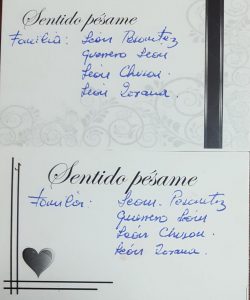 Sentido pésame
Familia: León Pesantez
Guerrero León
León Chuson.
León Lozana.
Sentido pésame
Familia: Leon. Pesantez
Guerrero León
León Chuson.
León Lozana.